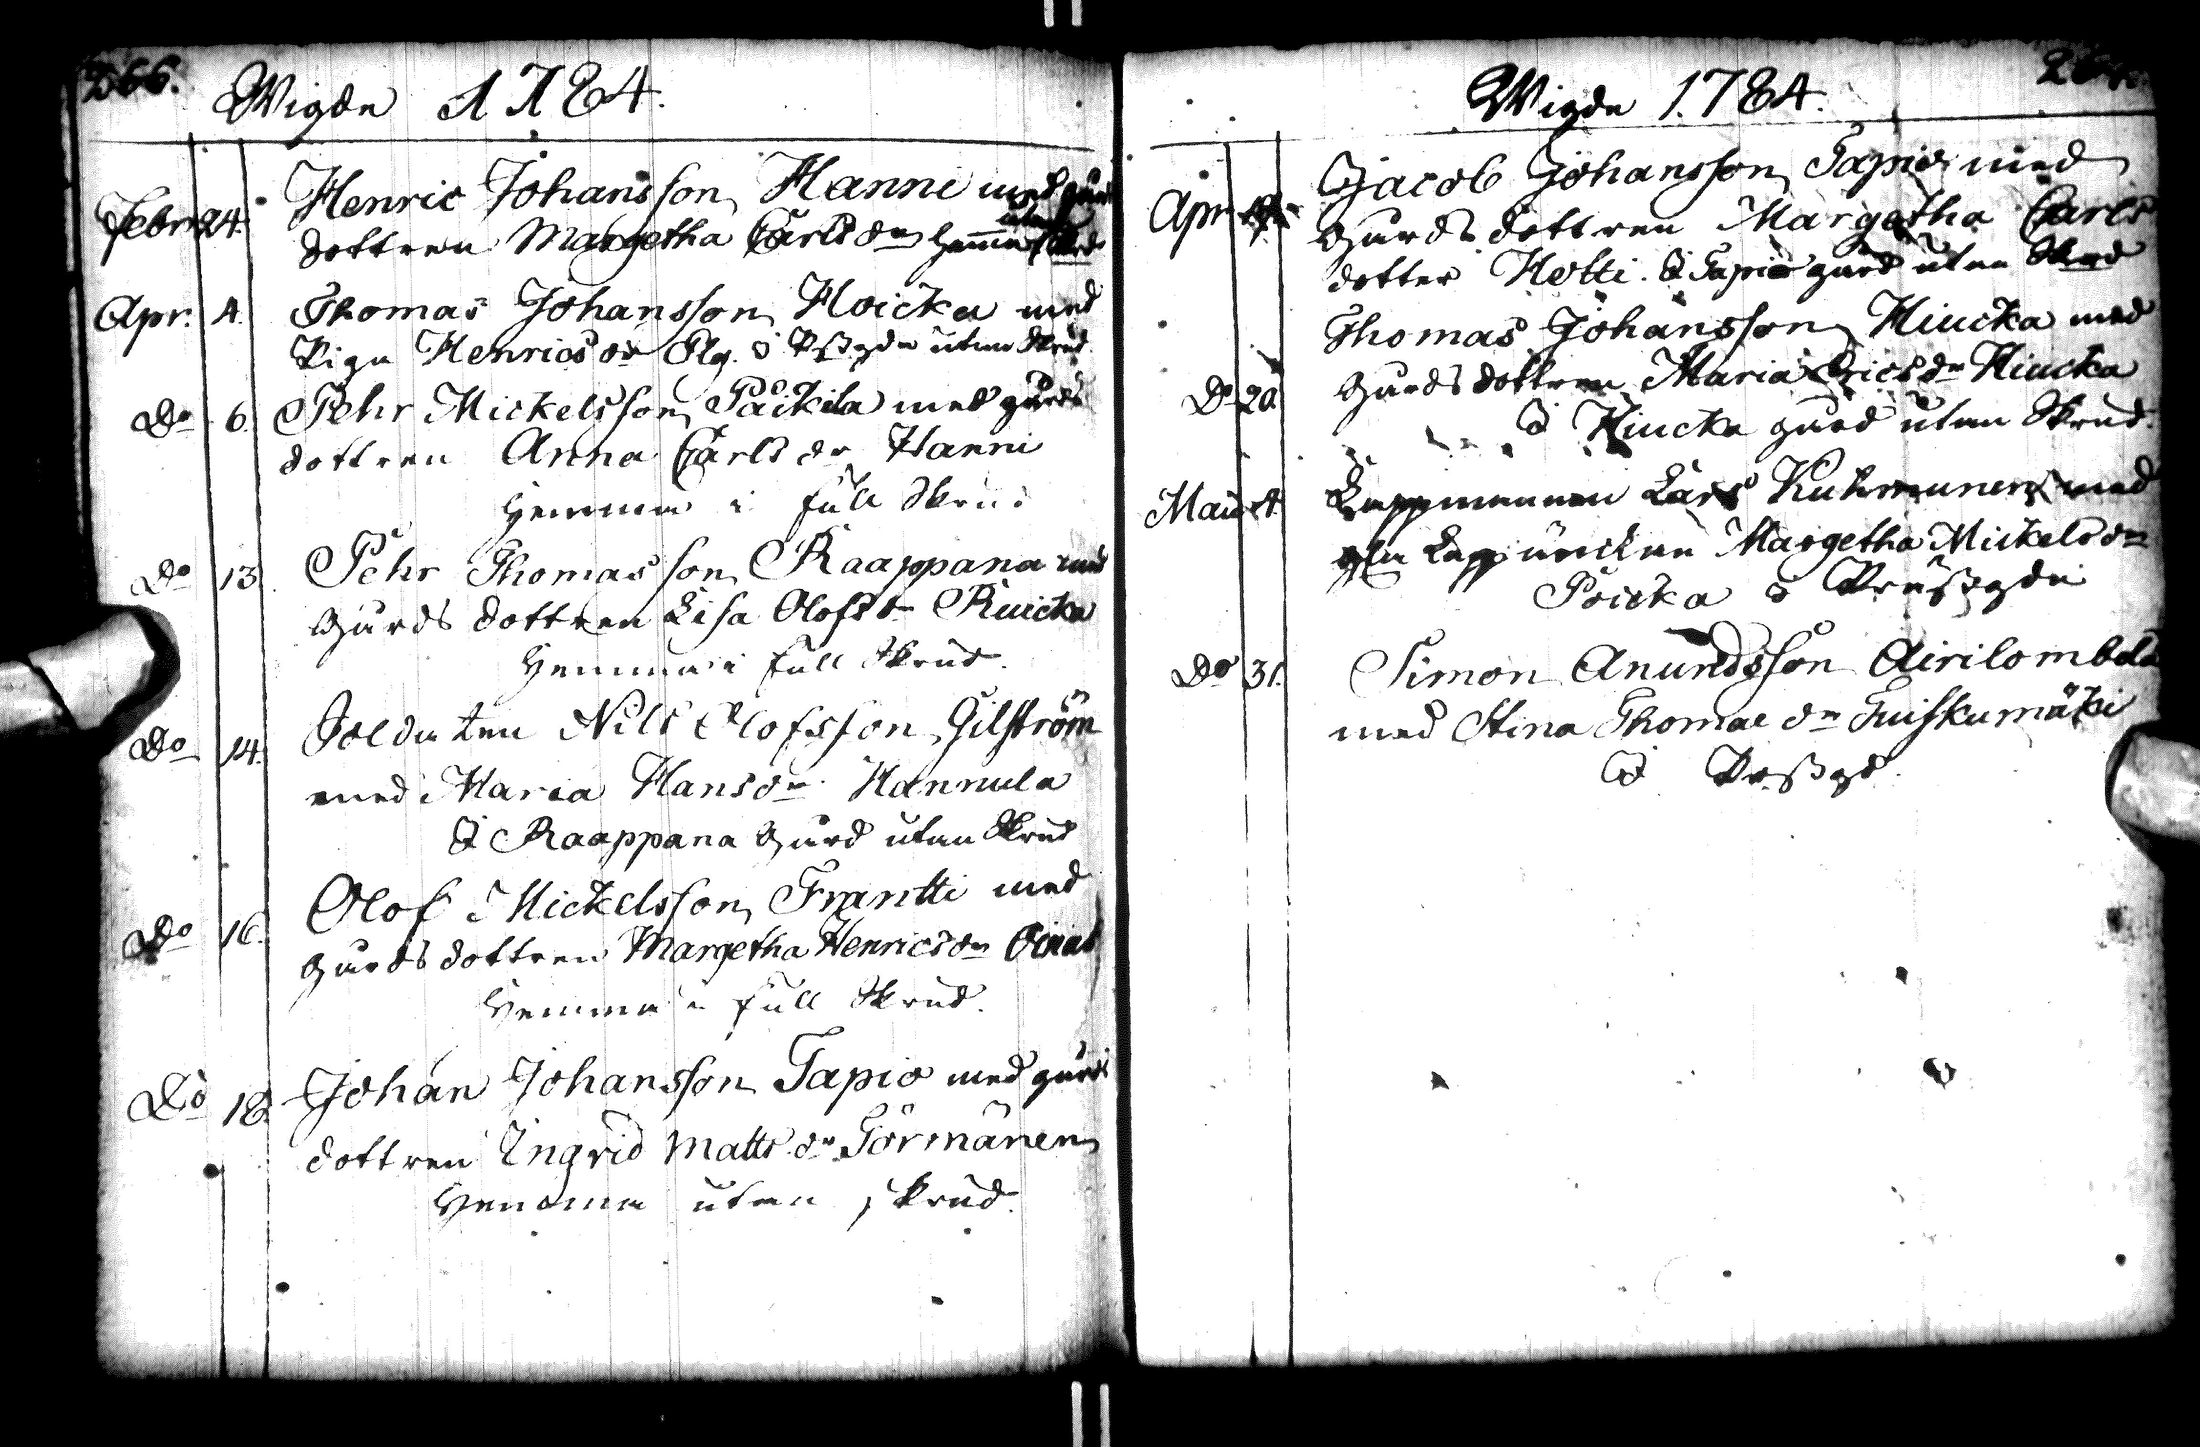 266.
Wigde 1784.
Febr. 24. Henric Johansson Hanni med gårds
dottren Margetha Carlsdr hemma utan skrud
Apr. 4. Thomas Johansson Hoicka med
Pigu Henricsdr i Prestgdn utan Skrud
Do 6. Pehr Mickelsson Päickila med gårds
dottren Anna Carlsdr Hanni
Hemma i full Skrud
Do 13. Pehr Thomasson Raappana med
Gårds dottren Lisa Olofsdr Ruicka
Hemma i full Skrud.
Do 14. Soldaten Nils Olofsson Gilström
med Maria Hansdr Hannula
å Raappana Gård utan Skrud
Do 16. Olof Mickelsson Frantti med
gårds dottren Margetha Henricsdr
Hemma i full Skrud.
Do 18. Johan Johansson Tapio med gårds
dottren Ingrid Mattsdr Törmänen
Hemma utan skrud.
Wigde 1784.
Apr. Jacob Johansson Tapio med
Gårds dottren Margetha Carls
dotter Hetti. å Tapio gård utan Skrud
Thomas Johansson Hiucka med
Do 20. Gårds dottren Maria Ericsdr Hiucka
å Hiucka gård utan Skrud.
Maii Lappmannen Lars Kuhmunen med
Margetha Mickelsdr
Poicka i Prestgdn
Do 31. Simon Anundsson Airilombolo
med Stina Thomaedr Tuiskumäki
i Prestgd.